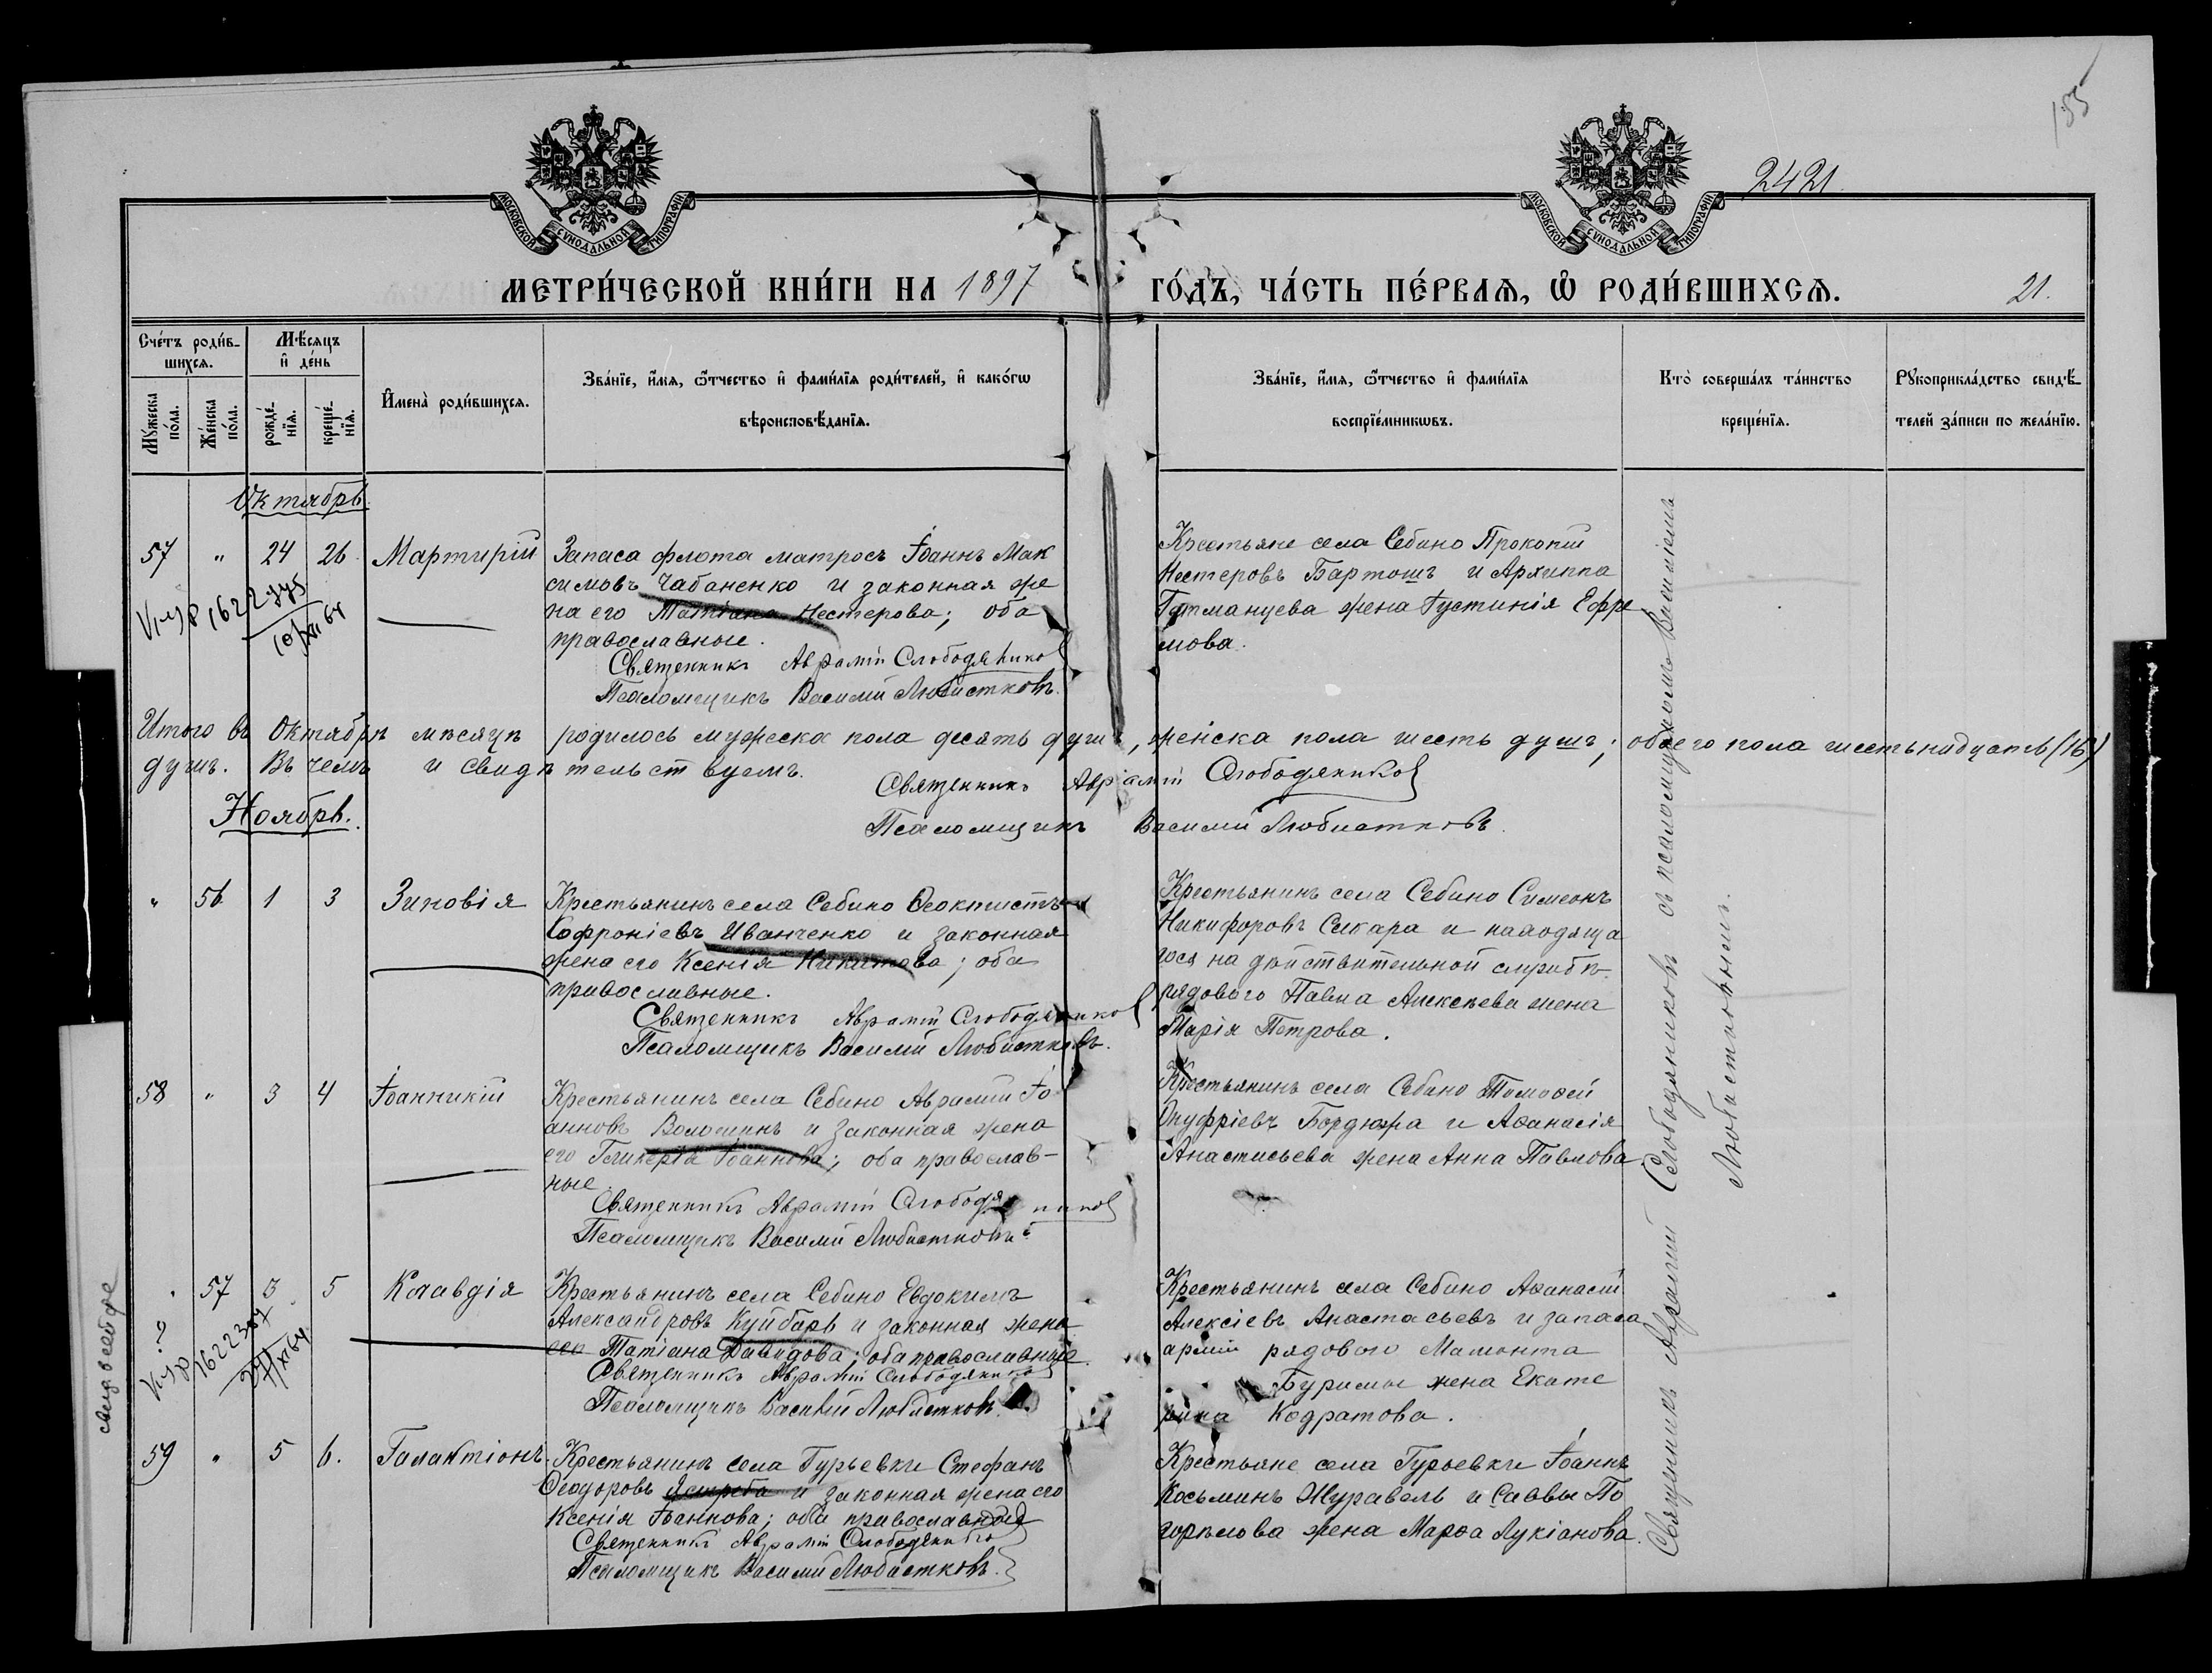 155
2421.
МОСКОВСКОЙ СѴНОДАЛЬНОЙ ТИПОГРАФІИ
МОСКОВСКОЙ СѴНОДАЛЬНОЙ ТИПОГРАФІИ
МЕТРИ́ЧЕСКОЙ КНИ́ГИ НА 1897 ГО́ДЪ, ЧА́СТЬ ПЕ́РВАѦ, Ѡ҆ РОДИ́ВШИХСѦ.
21.
Сче́тъ роди́в-
шихсѧ.
Мѣ́сѧцъ
и҆ де́нь
Мꙋ́жеска по́ла.
Же́нска по́ла.
рожде́-нїѧ.
креще́-нїѧ.
И҆мена̀ роди́вшихсѧ.
Зва́нїе, и҆́мѧ, ѻ҆́тчество и҆ фами́лїѧ роди́телей, и҆ како́гѡ
вѣроисповѣ́данїѧ.
Зва́нїе, и҆́мѧ, ѻ҆́тчество и҆ фами́лїѧ
воспрїе́мникѡвъ.
Кто̀ соверша́лъ та́инство
креще́нїѧ.
Рꙋкоприкла́дство свидѣ́-
телей за́писи по жела́нїю.
Октябрь
57 " 24 26 Мартирій
Запаса флота матросъ Іоаннъ Мак
симовъ Чабаненко и законная же
на его Татіана Нестерова; оба
православные.
Священникъ Аврамій Слободяников
Псаломщикъ Василій Любистковъ.
Крестьяне села Себино Прокопій
Нестеровъ Бартошъ и Архиппа
Гетманцева жена Густинія Ефре
мова.
1622
10/XII 64
Итого въ Октябрѣ мѣсяцѣ родилось мужеска пола десять душъ, женска пола шесть душъ; обоего пола шестьнадцать (16)
душъ. Въ чемъ и свидѣтельствуемъ.
Священникъ Аврамій Слободяников
Псаломщикъ Василій Любистковъ.
Ноябрь.
" 56 1 3 Зиновія
Крестьянинъ села Себино Ѳеоктистъ
Софроніевъ Иванченко и законная
жена его Ксенія Никитова; оба
православные.
Священникъ Аврамій Слободяников
Псаломщикъ Василій Любистковъ.
Крестьянинъ села Себино Симеонъ
Никифоровъ Сикара и находяща
гося на дѣйствительной службѣ
рядового Павла Алексѣева жена
Марія Петрова.
58 " 3 4 Іоанникій
Крестьянинъ села Себино Аврамій Іо
анновъ Волошинъ и законная жена
его Гликерія Іоаннова; оба православ-
ные.
Священникъ Аврамій Слободяников
Псаломщикъ Василій Любистковъ.
Крестьянинъ села Себино Тимоѳей
Онуфріевъ Бордюжа и Аѳанасія
Анастасьева жена Анна Павлова.
" 57 3 5 Клавдія
Крестьянинъ села Себино Евдокимъ
Александровъ Куйбарь и законная жена
его Татіана Давидова; оба православные.
Священникъ Аврамій Слободяников
Псаломщикъ Василій Любистковъ.
Крестьянинъ села Себино Аѳанасій
Алексіевъ Анастасьевъ и запаса
арміи рядового Мамонта
Буримы жена Екате
рина Кодратова.
?
59 " 5 6. Галактіонъ
Крестьянинъ села Гурьевки Стефанъ
Ѳеодоровъ Ястреба и законная жена его
Ксенія Іоаннова; оба православные
Священникъ Аврамій Слободяников
Псаломщикъ Василій Любистковъ.
Крестьяне села Гурьевки Іоаннъ
Косьминъ Журавель и Саввы По
горѣлова жена Марѳа Лукіанова.
Священникъ Аврамій Слободяниковъ съ псаломщикомъ Василіемъ
Любистковымъ.